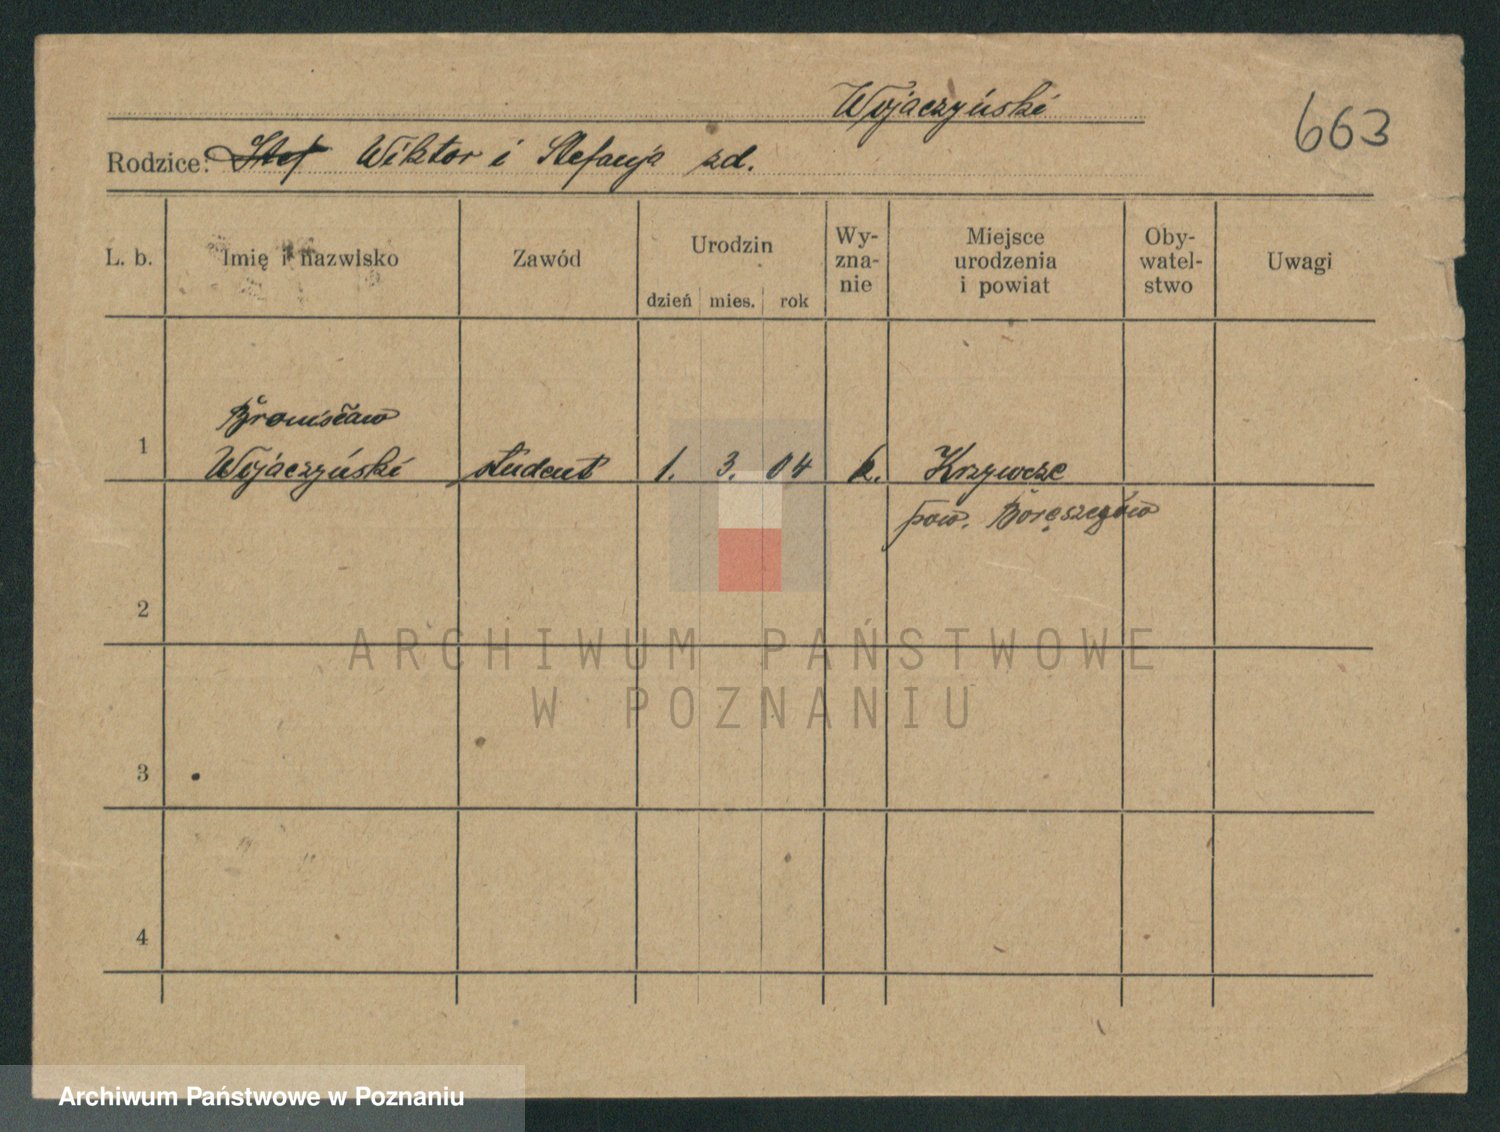 Wojaczyński
663
Rodzice: Stef Wiktor i Stefanja zd.
L. b.
Imię i nazwisko
Zawód
Urodzin
dzień mies. rok
Wy-
zna-
nie
Miejsce
urodzenia
i powiat
Oby-
watel-
stwo
Uwagi
Bronisław
1 Wojaczyński student 1. 3. 04 k. Krzywcze
pow.
2
3
4
ARCHIWUM PAŃSTWOWE
W POZNANIU
Archiwum Państwowe w Poznaniu